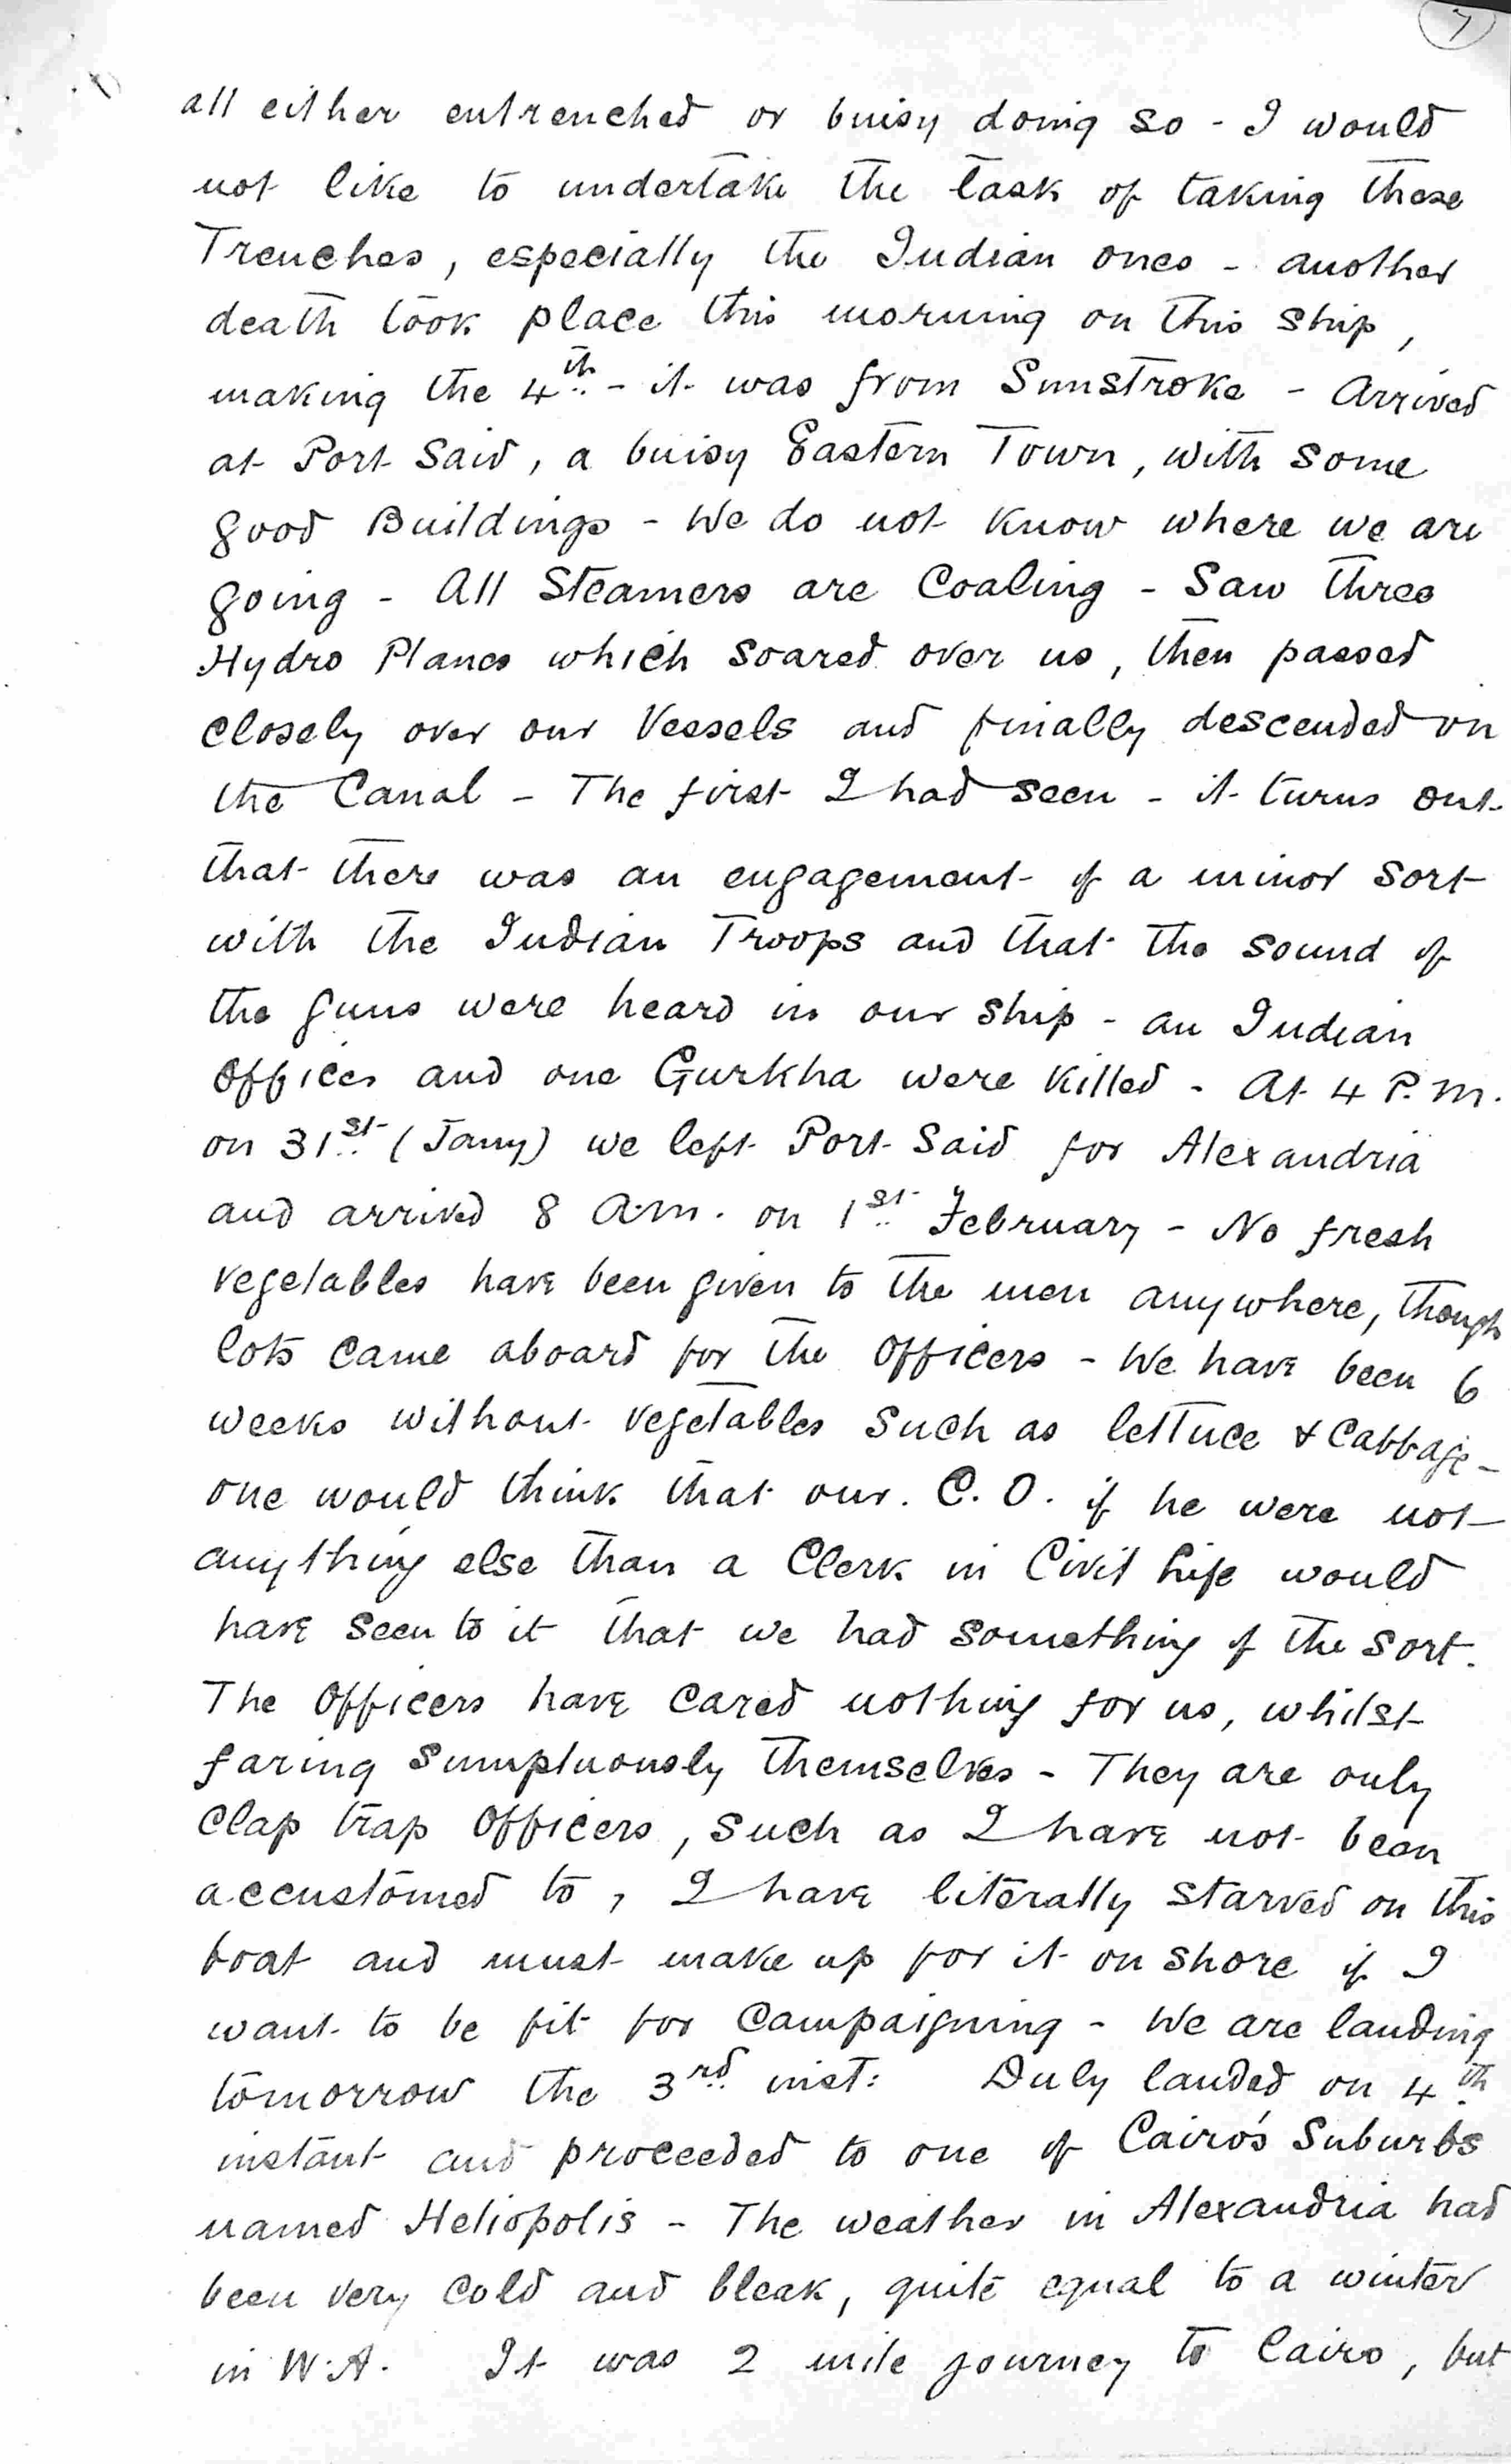 7
all either entrenched or buisy doing so - I would
not like to undertake the task of taking these
Trenches, especially the Indian ones - another
death took place this morning on this ship,
making the 4th - it was from Sunstroke - Arrived
at Port Said, a buisy Eastern Town, with some
good Buildings - We do not know where we are
going - All Steamers are Coaling - Saw three
Hydro Planes which soared over us, then passed
closely over our Vessels and finally descended on
the Canal - The first I had seen - it turns out
that there was an engagement of a minor sort
with the Indian Troops and that the sound of
the guns were heard in our ship - an Indian
Officer and one Gurkha were killed - At 4 P.m.
on 31st (Jany) we left Port Said for Alexandria
and arrived 8 a.m. on 1st February - No fresh
vegetables have been given to the men anywhere, though
lots came aboard for the Officers - We have been 6
weeks without vegetables such as lettuce & Cabbage -
one would think that our C.O. if he were not
anything else than a Clerk in Civil Life would
have seen to it that we had something of the sort.
The Officers have cared nothing for us, whilst
faring sumptuously themselves - They are only
Clap trap Officers, such as I have not been
accustomed to, I have literally starved on this
boat and must make up for it on shore if I
want to be fit for Campaigning - We are landing
tomorrow the 3rd inst: Duly landed on 4th
instant and proceeded to one of Cairo's Suburbs
named Heliopolis - The weather in Alexandria had
been very cold and bleak, quite equal to a winter
in W.A. It was 2 mile journey to Cairo, but